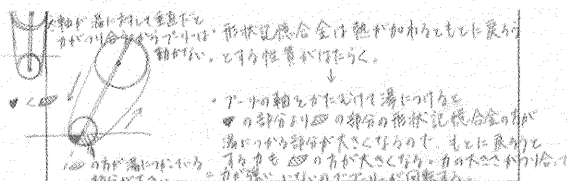 軸が湯に対して垂直だと
力がつり合うからプーリーは
動かない。
形状記憶合金は熱が加わるともとに戻ろう
とする性質がはたらく。
↓
・プーリの軸をかたむけて湯につけると
♥の部分より の部分の形状記憶合金の方が
湯につかる部分が大きくなるので、もとに戻ろうと
する力も の方が大きくなる。力の大きさがつり合って
いないのでプーリーが回転する。
♥ <
の方が湯につかっている
部分が大きい